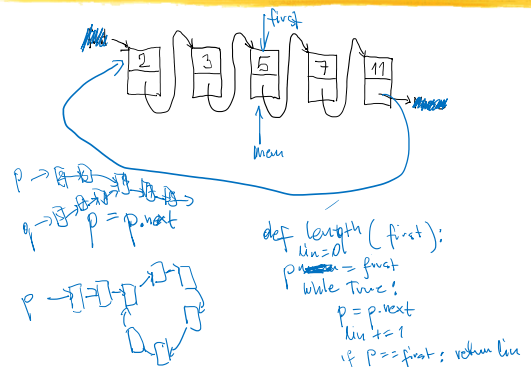 first
2 3 5 7 11
men
p
q
p = p.next
p
def length (first):
lin=0
p = first
while True:
p = p.next
lin += 1
if p == first: return lin